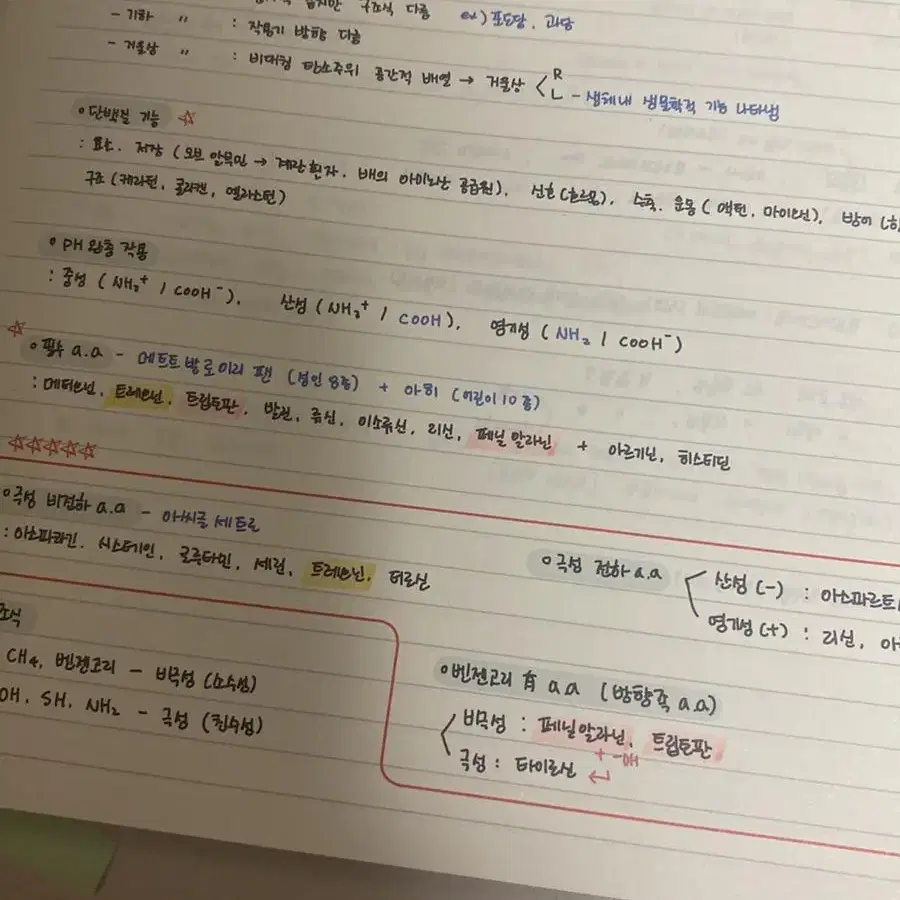 구조식 다름 ex) 포도당, 과당
- 기하 〃 : 작용기 방향 다름
- 거울상 〃 : 비대칭 탄소주위 공간적 배열 → 거울상 < R
L - 생체내 생물학적 기능 나타냄
• 단백질 기능 ☆
: 효소, 저장 (오브 알부민 → 계란 흰자, 배의 아미노산 공급원), 신호(호르몬), 수축, 운동 (액틴, 마이오신), 방어
구조 (케라틴, 콜라겐, 엘라스틴)
• PH 완충 작용
: 중성 (NH₃⁺ / COOH⁻), 산성 (NH₃⁺ / COOH), 염기성 (NH₂ / COOH⁻)
☆
• 필수 a.a - 메트트 발로이리 팬 (성인 8종) + 아히 (어린이 10종)
: 메티오닌, 트레오닌, 트립토판, 발린, 류신, 이소류신, 리신, 페닐알라닌 + 아르기닌, 히스티딘
☆☆☆☆☆
• 극성 비전하 a.a - 아씨글 세트로
: 아스파라긴, 시스테인, 글루타민, 세린, 트레오닌, 티로신
• 극성 전하 a.a < 산성 (-) : 아스파르트
염기성 (+) : 리신, 아
조식
CH₄, 벤젠고리 - 비극성 (소수성)
OH, SH, NH₂ - 극성 (친수성)
• 벤젠고리 有 a.a (방향족 a.a)
비극성 : 페닐알라닌, 트립토판
+ -OH
극성 : 타이로신 ↵